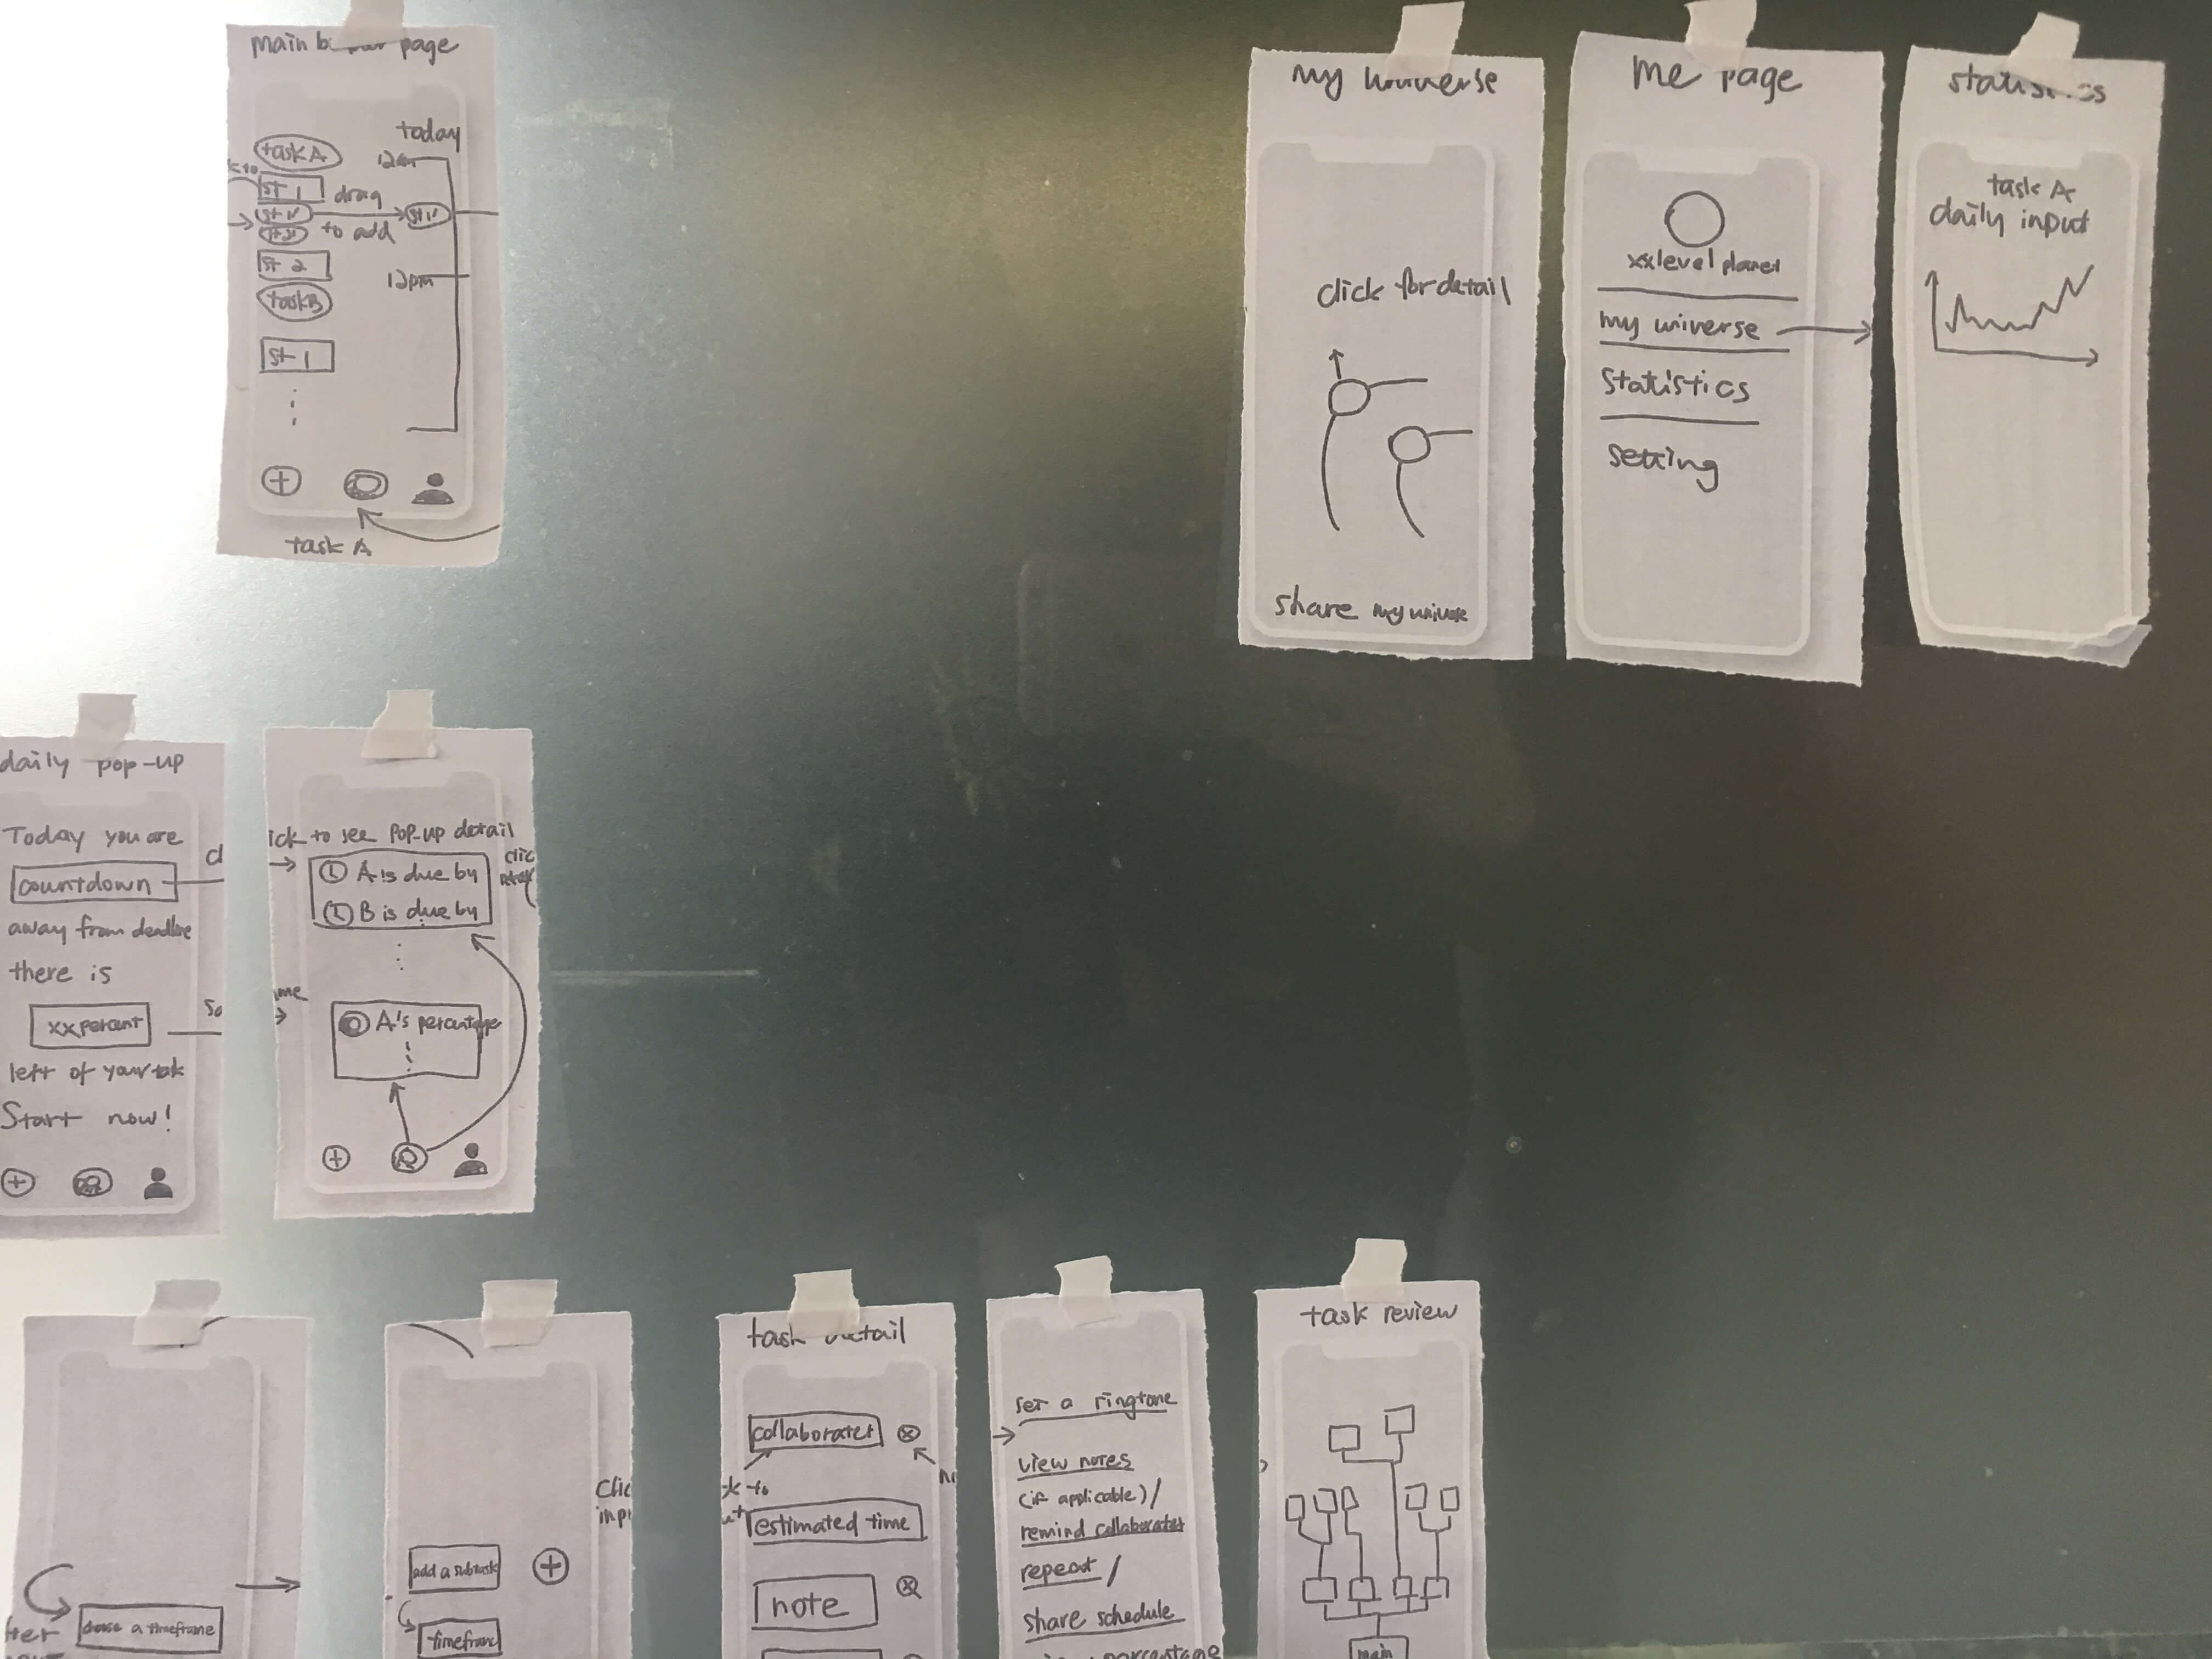 page
today
task A
12am
st 1
drag
st 1'
st 1'
to add
st 2
12pm
task B
st 1
task A
my universe
click for detail
share my universe
me page
xx level planet
my universe
statistics
setting
statistics
task A
daily input
daily pop-up
Today you are
countdown
away from deadline
there is
xx percent
left of your tak
Start now!
ick to see pop-up detail
A is due by
B is due by
A's percentage
add a subtask
task detail
collaborater
estimated time
note
set a ringtone
view notes
(if applicable) /
remind collaborater
repeat /
share schedule
percentage
task review
main